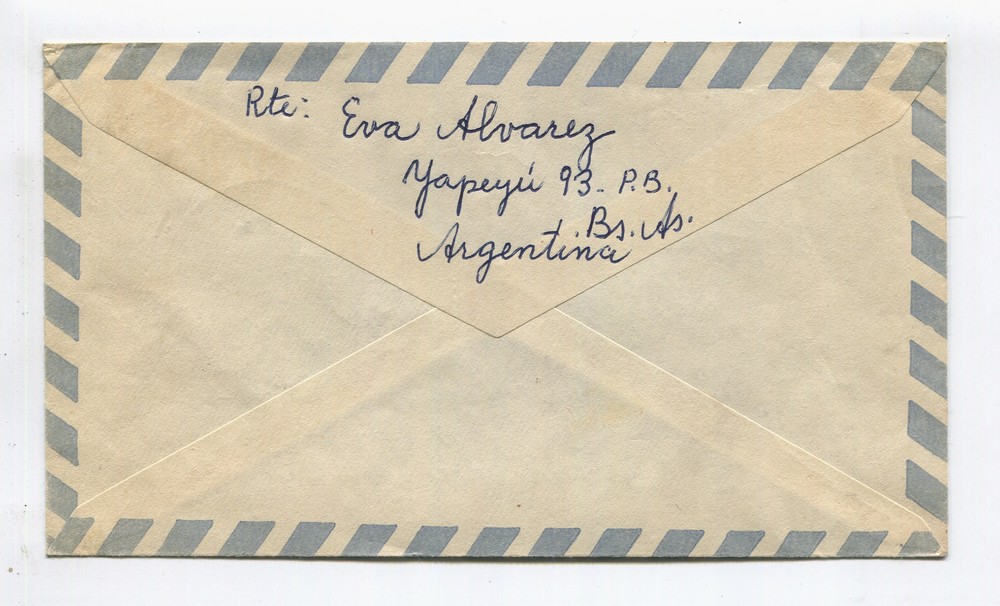 Rte: Eva Alvarez
Yapeyú 93- P.B.
Bs. As.
Argentina